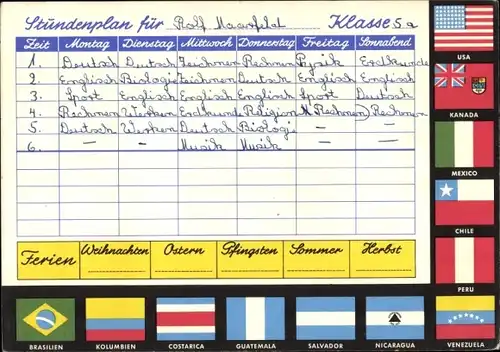 Stundenplan für Rolf Maarsfeld Klasse 5a
Zeit Montag Dienstag Mittwoch Donnerstag Freitag Sonnabend
1. Deutsch Deutsch Zeichnen Rechnen Physik Erdkunde
2. Englisch Biologie Zeichnen Deutsch Englisch Englisch
3. Sport Englisch Englisch Englisch Sport Deutsch
4. Rechnen Werken Erdkunde Religion Rechnen Rechnen
5. Deutsch Werken Deutsch Biologie – –
6. – – Musik Musik
Ferien Weihnachten Ostern Pfingsten Sommer Herbst
USA
KANADA
MEXICO
CHILE
PERU
BRASILIEN KOLUMBIEN COSTARICA GUATEMALA SALVADOR NICARAGUA VENEZUELA